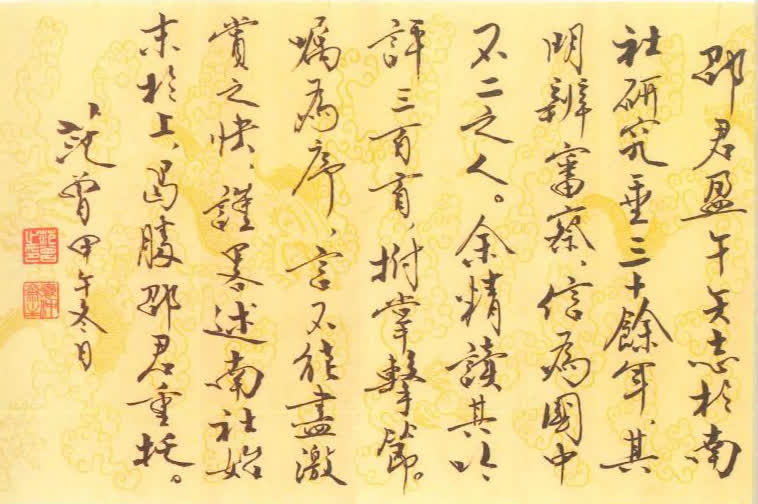 邵君盈午矢志於南
社研究垂三十餘年、其
明辨審察、信為國中
不二之人。余精讀其吟
評三百首、拊掌擊節。
囑為序、言不能盡激
賞之快、謹略述南社始
末於上、曷勝邵君重托。
范曾甲午冬日